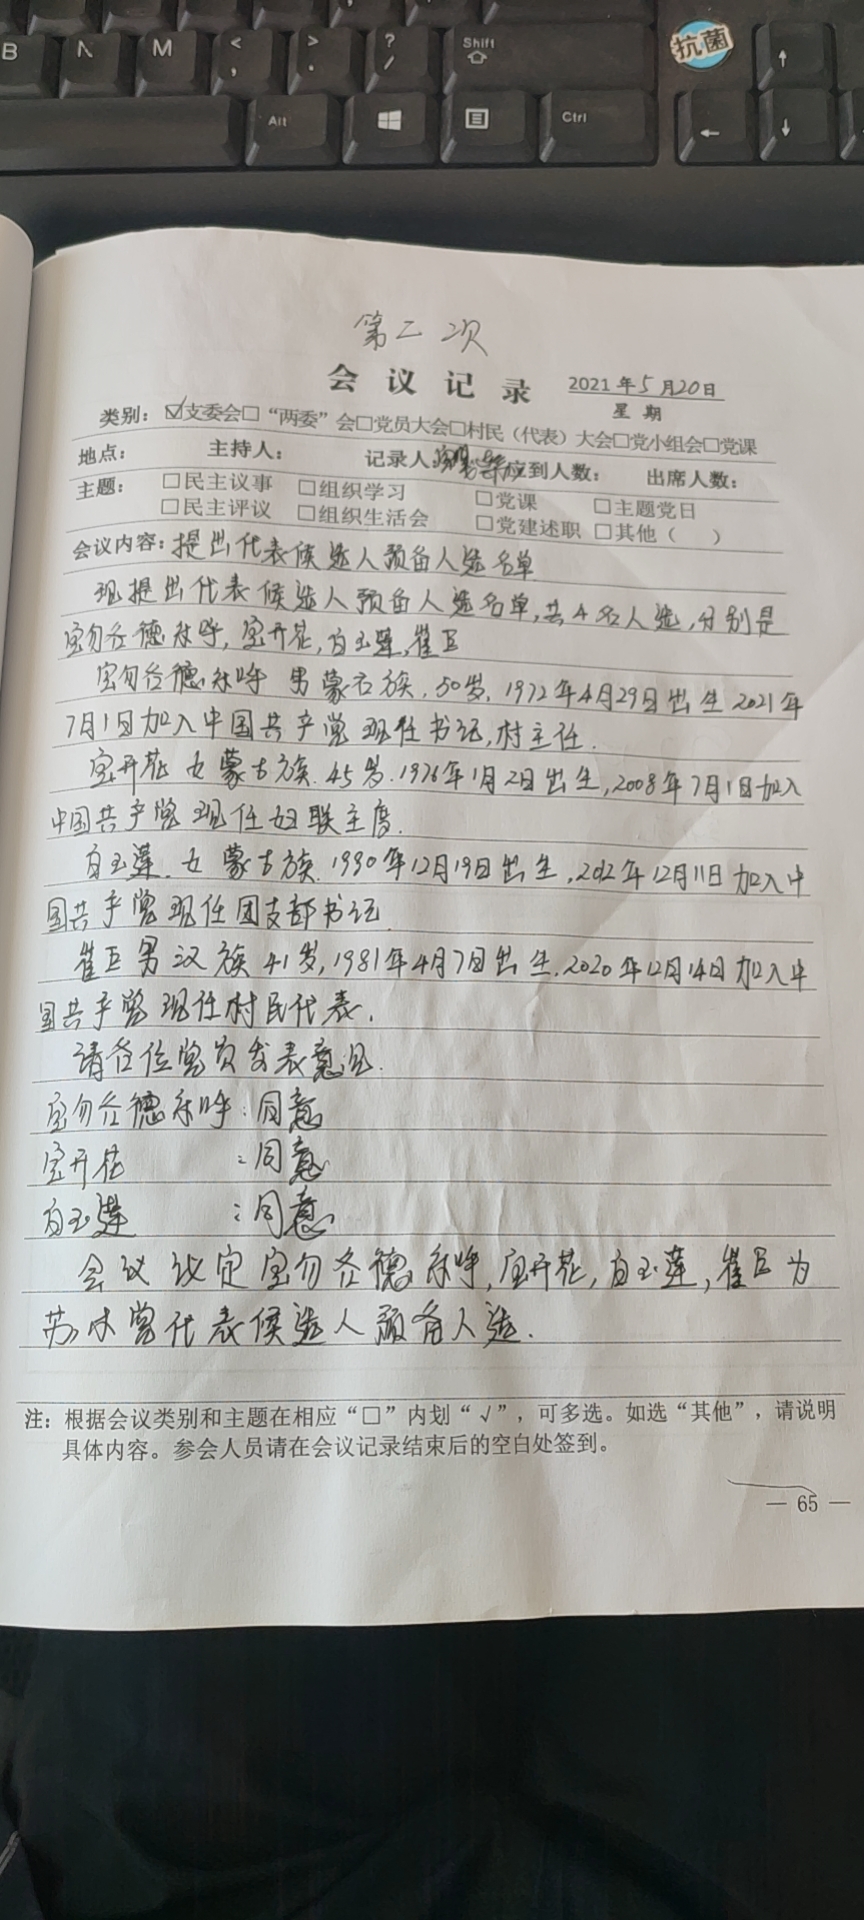 B N M < , > . ? / Shift 抗菌 ↑
Alt Ctrl ← ↓
第二次
会议记录 2021年5月20日
星期
类别：☑支委会□“两委”会□党员大会□村民（代表）大会□党小组会□党课
地点： 主持人： 记录人： 应到人数： 出席人数：
主题： □民主议事 □组织学习 □党课 □主题党日
□民主评议 □组织生活会 □党建述职 □其他（ ）
会议内容：提出代表候选人预备人选名单
现提出代表候选人预备人选名单,共4名人选,分别是
宝勿各德尔呼,宝开花,白玉莲,崔巨
宝勿各德尔呼 男 蒙古族,50岁,1972年4月29日出生 2021年
7月1日加入中国共产党 现任书记,村主任.
宝开花 女 蒙古族.45岁.1976年1月2日出生,2008年7月1日加入
中国共产党 现任妇联主席.
白玉莲.女 蒙古族.1990年12月19日出生,2012年12月11日加入中
国共产党现任团支部书记
崔巨男汉族41岁,1981年4月7日出生.2020年12月14日加入中
国共产党 现任村民代表.
请各位党员发表意见.
宝勿各德尔呼：同意
宝开花：同意
白玉莲：同意
会议议定宝勿各德尔呼,宝开花,白玉莲,崔巨为
苏木党代表候选人预备人选.
注：根据会议类别和主题在相应“□”内划“√”，可多选。如选“其他”，请说明
具体内容。参会人员请在会议记录结束后的空白处签到。
— 65 —